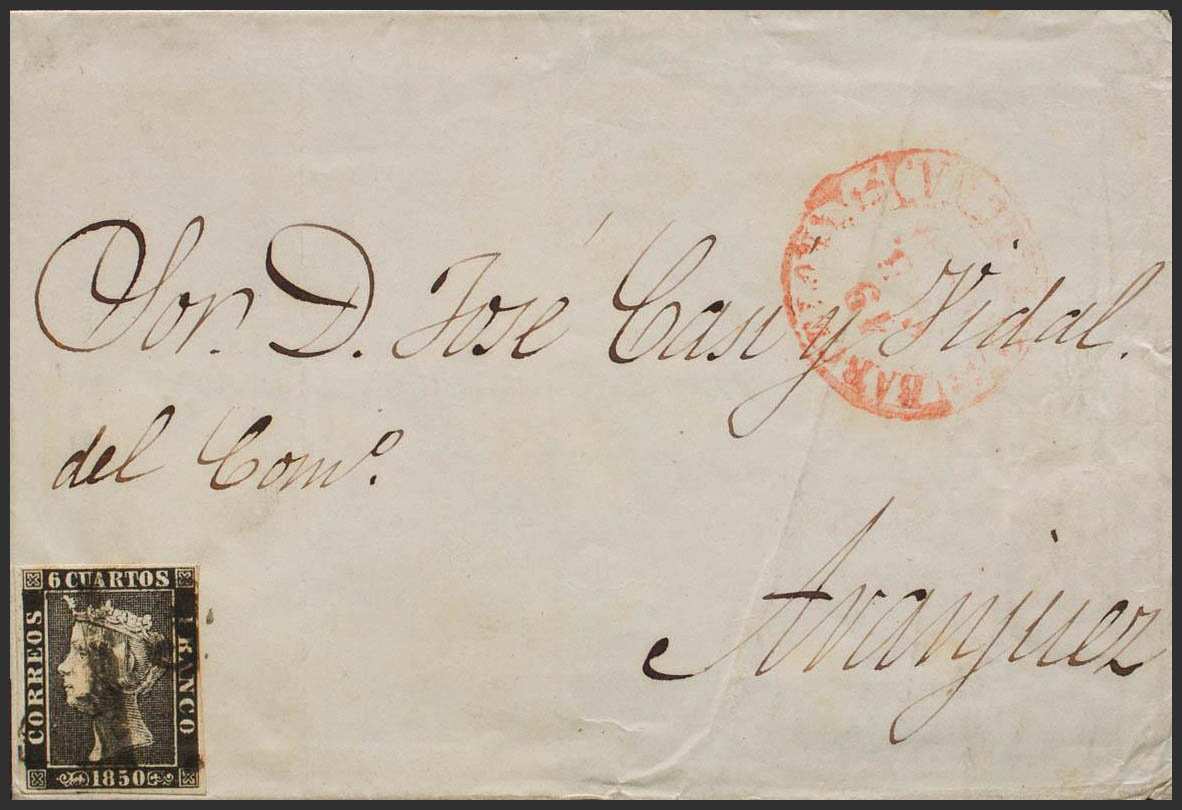 Sor. D. José Casi y Vidal.
del Comº.
Aranjuez
6 CUARTOS
CORREOS
FRANCO
1850